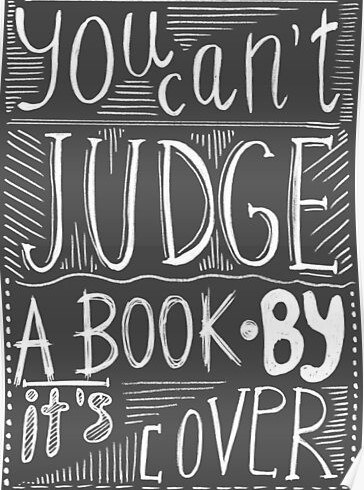 you can't
JUDGE
A BOOK • BY
it's COVER